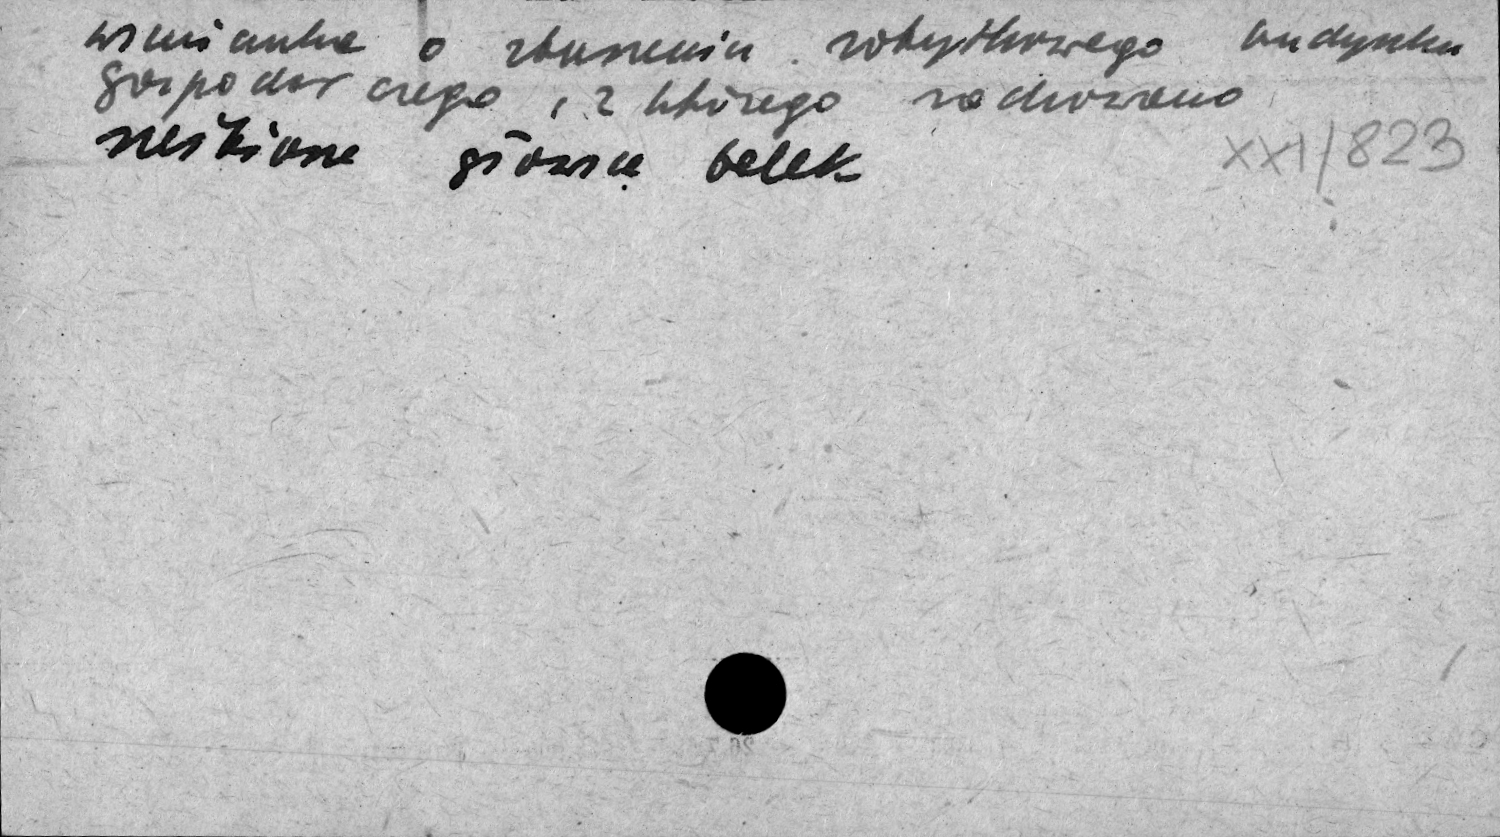 wzmianka o zburzeniu zabytkowego budynku
gospodarczego, z którego zachowano
rzeźbione głowice belek
XXI/823